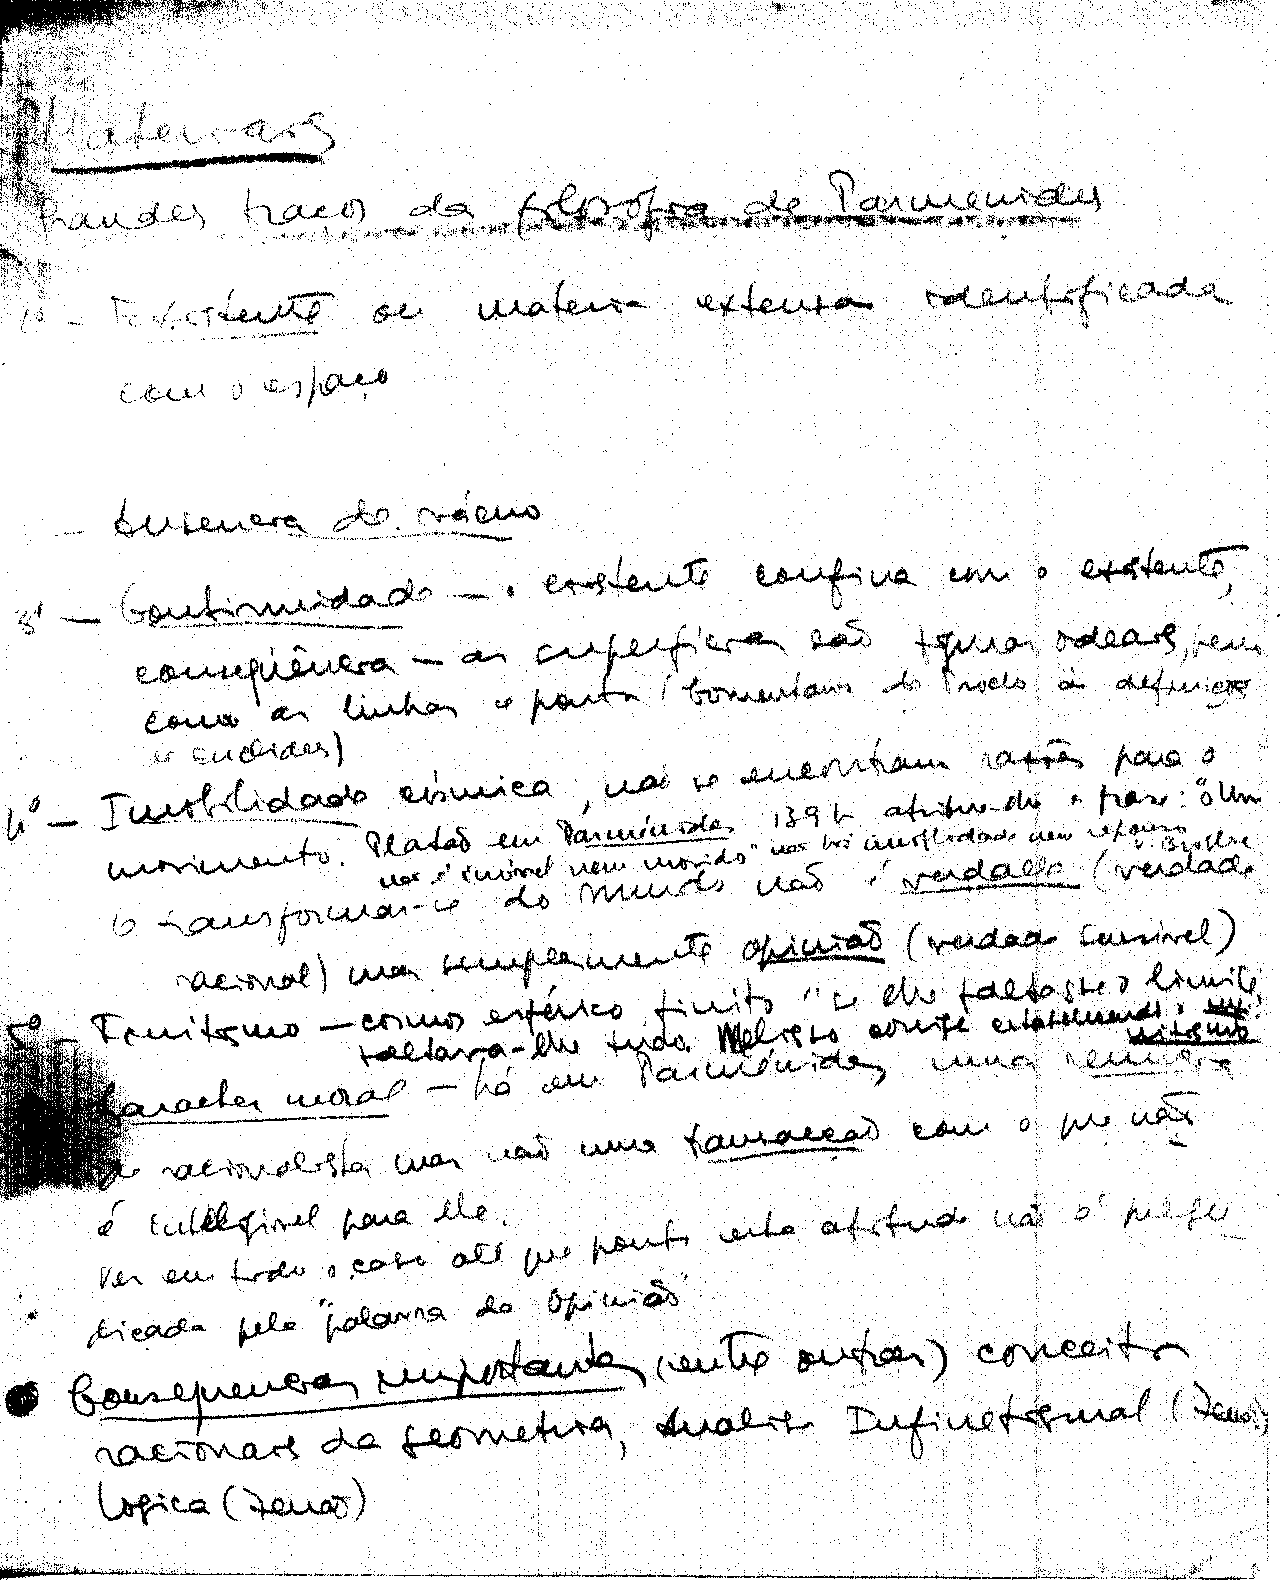 Materiais
Grandes traços da filosofia de Parmenides
1º - Existente ou materia extensa identificada
com o espaço
- Ausencia de vácuo
3º - Continuidade - o existente confina com o existente,
conseqüência - as superficies são figuras ideais, bem
como as linhas e pontos (Comentario de Proclo às definições
de Euclides)
4º - Imobilidade cósmica, não se encontram razões para o
movimento. Platão em Parménides 139 b atribue-lhe a frase: "o Um
não é imóvel nem movido" não há imobilidade nem repouso
O transformar-se do mundo não é verdade (verdade
racional) mas simplesmente opinião (verdade sensivel)
5º - Finitismo - cosmos esférico finito "se lhe faltasse o limite,
faltava-lhe tudo. Melisso corrige
Caracter moral - há em Parménides uma
racionalista mas não uma transacção com o que não
é inteligivel para ele.
Ver em todo o caso até que ponto esta atitude não é preju
dicada pela "palavra da Opinião"
Consequencias importantes (entre outras) conceitos
racionais da geometria, Analise Infinitesimal (Zenão),
Logica (Zenão)